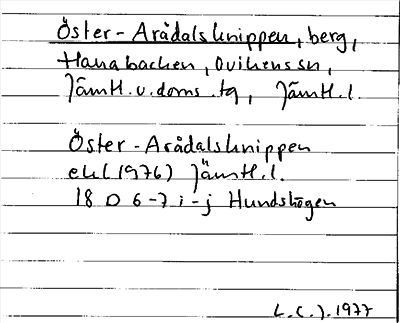 Öster-Arådalsknippen, berg,
Hanabacken, Ovikens sn,
Jämtl.v.doms.tg, Jämtl.l.
Öster-Arådalsknippen
ekl (1976) Jämtl.l.
18 D 6-7 i-j Hundshögen
L.C.J.1977